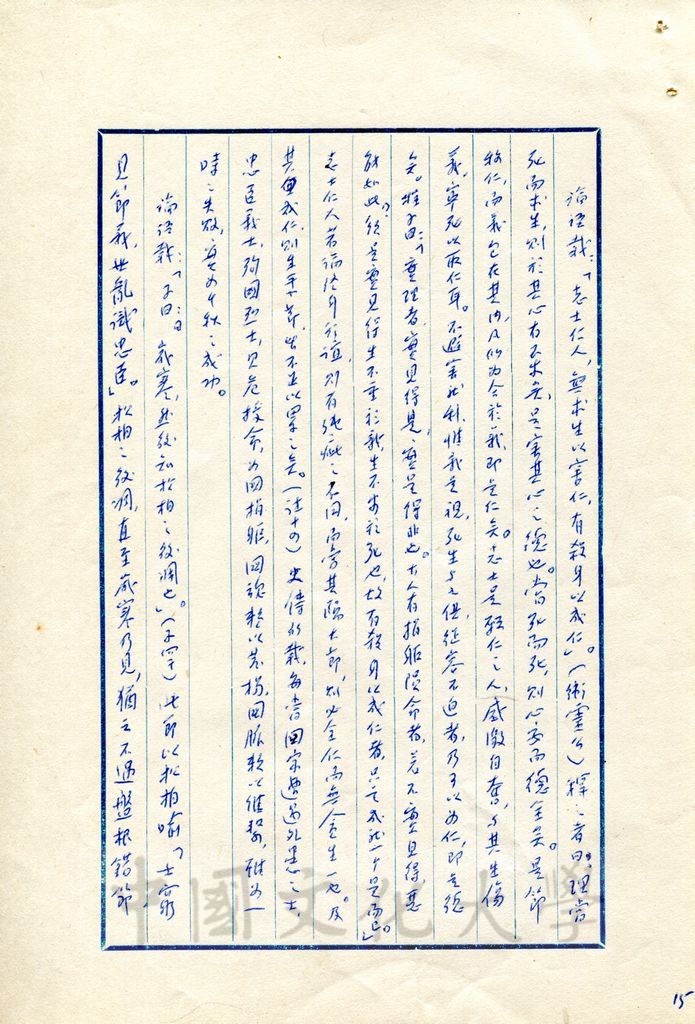 論語載:「志士仁人,無求生以害仁,有殺身以成仁」。(衛靈公)釋之者曰:理當
死而求生,則於其心有不安矣,是害其心之德也。當死而死,則心安而德全矣。是節
稱仁,而義包在其內,凡所為合於義,即是仁矣。志士是輕仁之人,感激自奮,與其生傷
義,寧死以取仁耳。不避害就利,惟義是視,死生與之俱,從容不迫者,乃可以為仁,即是德
矣。程子曰:「實理者,實見得是,實見得非也。古人有捐軀隕命者,若不實見得,惡
能如此?須是實見得生不重於義,生不安於死也,故有殺身以成仁者,只是成就一个是而已」。
志士仁人若論修身於誼,則有純疵之不同,而當其臨大節,則必全仁而無全生一也。及
其重成仁,則生平大節,
忠臣義士,殉國烈士,見危授命,為國捐軀,國魂整以發揚,國脈賴以維繫,雖為一
時之失敗,實為千秋之成功。
論語載:「子曰:歲寒,然後知松柏之後凋也」(子罕)此節以松柏喻「士窮
見節義,世亂識忠臣。」松柏之後凋,直至歲寒乃見,猶之不遇盤根錯節
中國文化大學
15